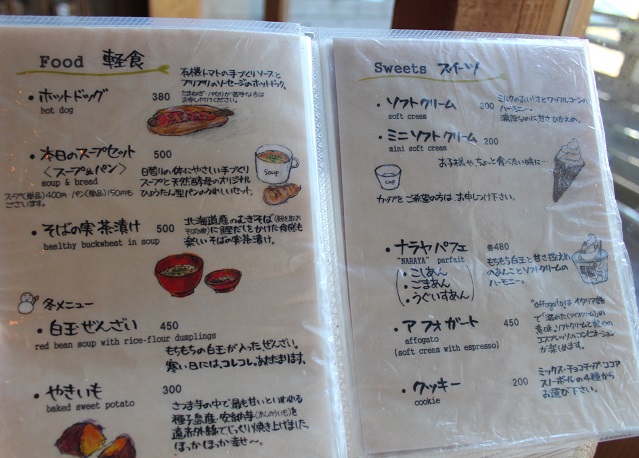 Food 軽食
・ホットドッグ 380
hot dog
有機トマトの手づくりソースと
プリプリのソーセージのホットドック。
・本日のスープセット 500
〈スープ&パン〉
soup & bread
スープ(単品)400円 パン(単品)150円も
ございます。
日替りの体にやさしい手づくり
スープと天然酵母のオリジナル
ひょうたん型パンのかわいいセット。
Soup
・そばの実茶漬け 500
healthy buckwheat in soup
北海道産のむきそば
に鰹だしをかけた食感も
楽しいそばの実茶漬。
冬メニュー
・白玉ぜんざい 450
red bean soup with rice-flour dumplings
もちもちの白玉が入ったぜんざい。
寒い日には、コレコレ、あたたまります。
・やきいも 300
baked sweet potato
さつま芋の中で最も甘いといわれる
種子島産・安納芋(あんのういも)を
遠赤外線でじっくり焼き上げました
ほっかほっか幸せ〜。
Sweets スイーツ
・ソフトクリーム 200
soft cream
ミルクのおいしさとワッフルコーンの
ハーモニー。
濃厚なのに甘さひかえめ。
・ミニソフトクリーム 200
mini soft cream
お子様や、ちょっと食べたい時に…
カップをご希望の方は、お申しつけ下さい。
・ナラヤパフェ 各480
"NARAYA" parfait
・こしあん
・ごまあん
・うぐいすあん
もちもち白玉と甘さ控えめ
のあんことソフトクリームの
ハーモニー。
・アフォガート 450
affogato
(soft cream with espresso)
"affogato"はイタリア語
で"溺れた(アイスクリーム)"の
意味。ソフトクリームと
エスプレッソのコンビネーション
が楽しめます。
・クッキー 200
cookie
ミックス・チョコチップ・ココア
スノーボールの4種から
お選び下さい。